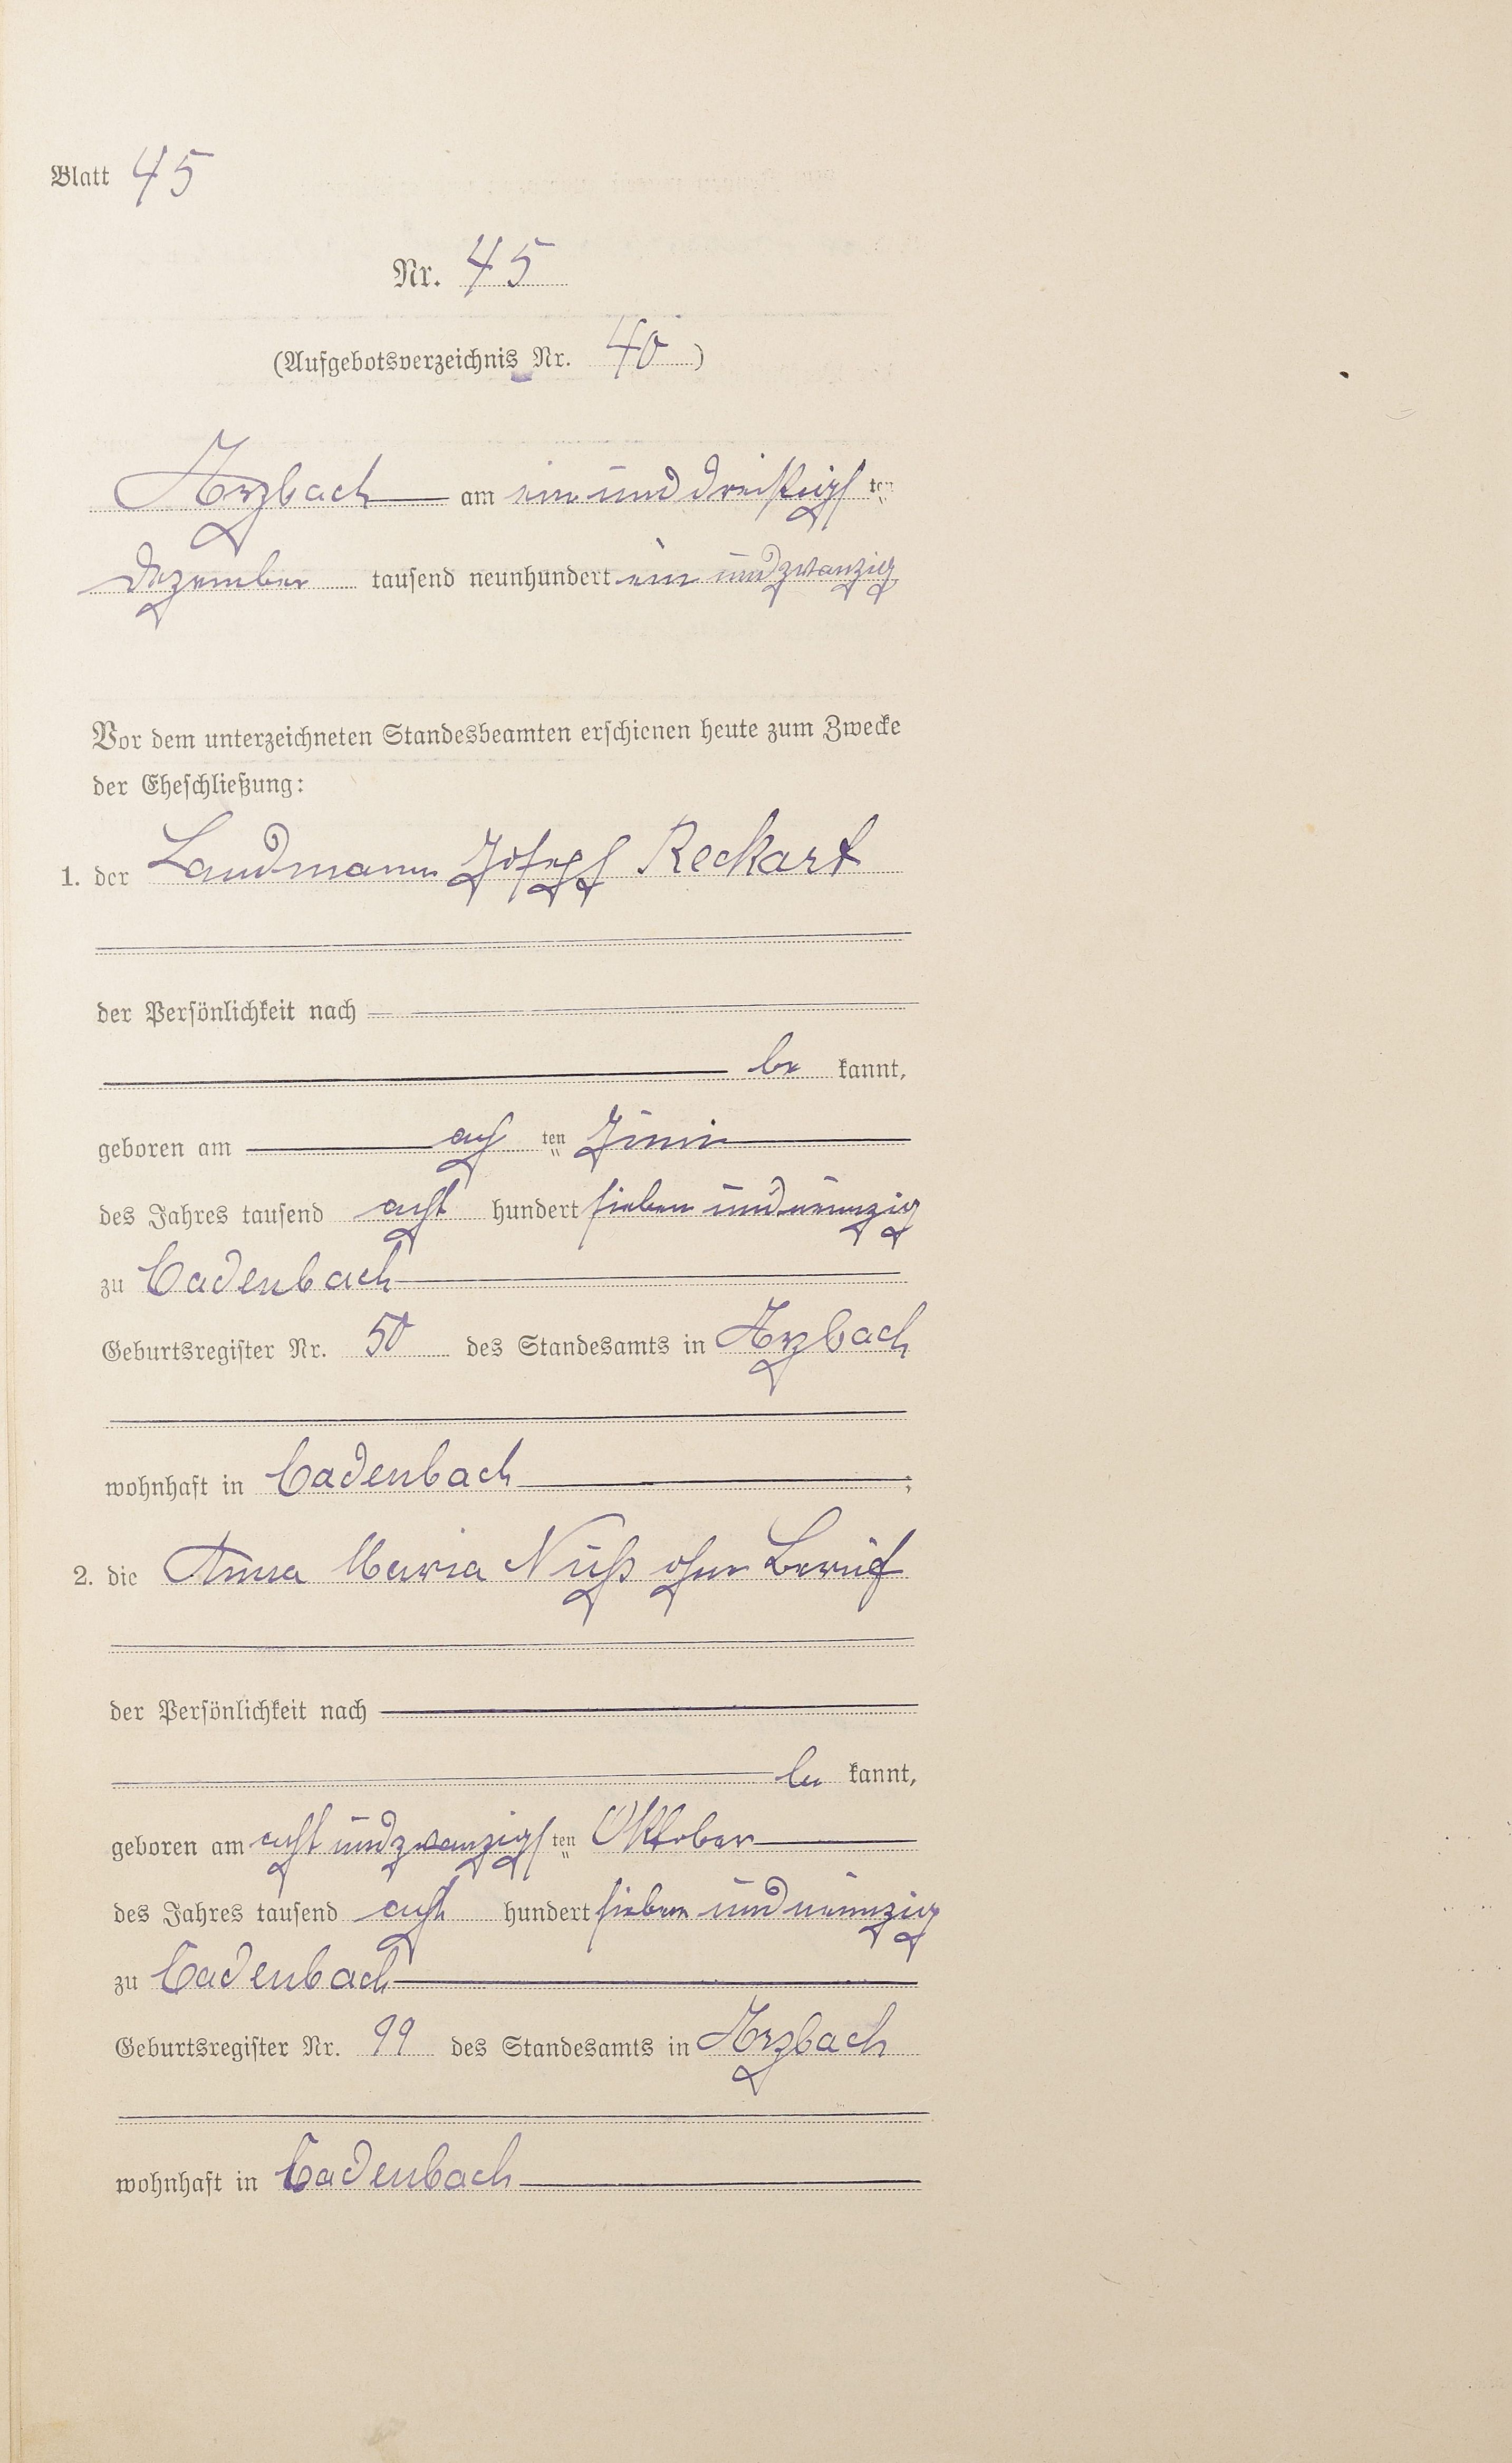 Blatt 45
Nr. 45
(Aufgebotsverzeichnis Nr. 40)
Arzbach am ein und dreißigsten
Dezember tausend neunhundert ein und zwanzig
Vor dem unterzeichneten Standesbeamten erschienen heute zum Zwecke
der Eheschließung:
1. der Landmann Joseph Reckart
der Persönlichkeit nach
be kannt,
geboren am ach ten Juni
des Jahres tausend acht hundert sieben und neunzig
zu Cadenbach
Geburtsregister Nr. 50 des Standesamts in Arzbach
wohnhaft in Cadenbach;
2. die Anna Maria Nuß ohne Beruf
der Persönlichkeit nach
be kannt,
geboren am acht und zwanzigsten Oktober
des Jahres tausend acht hundert sieben und neunzig
zu Cadenbach
Geburtsregister Nr. 99 des Standesamts in Arzbach
wohnhaft in Cadenbach